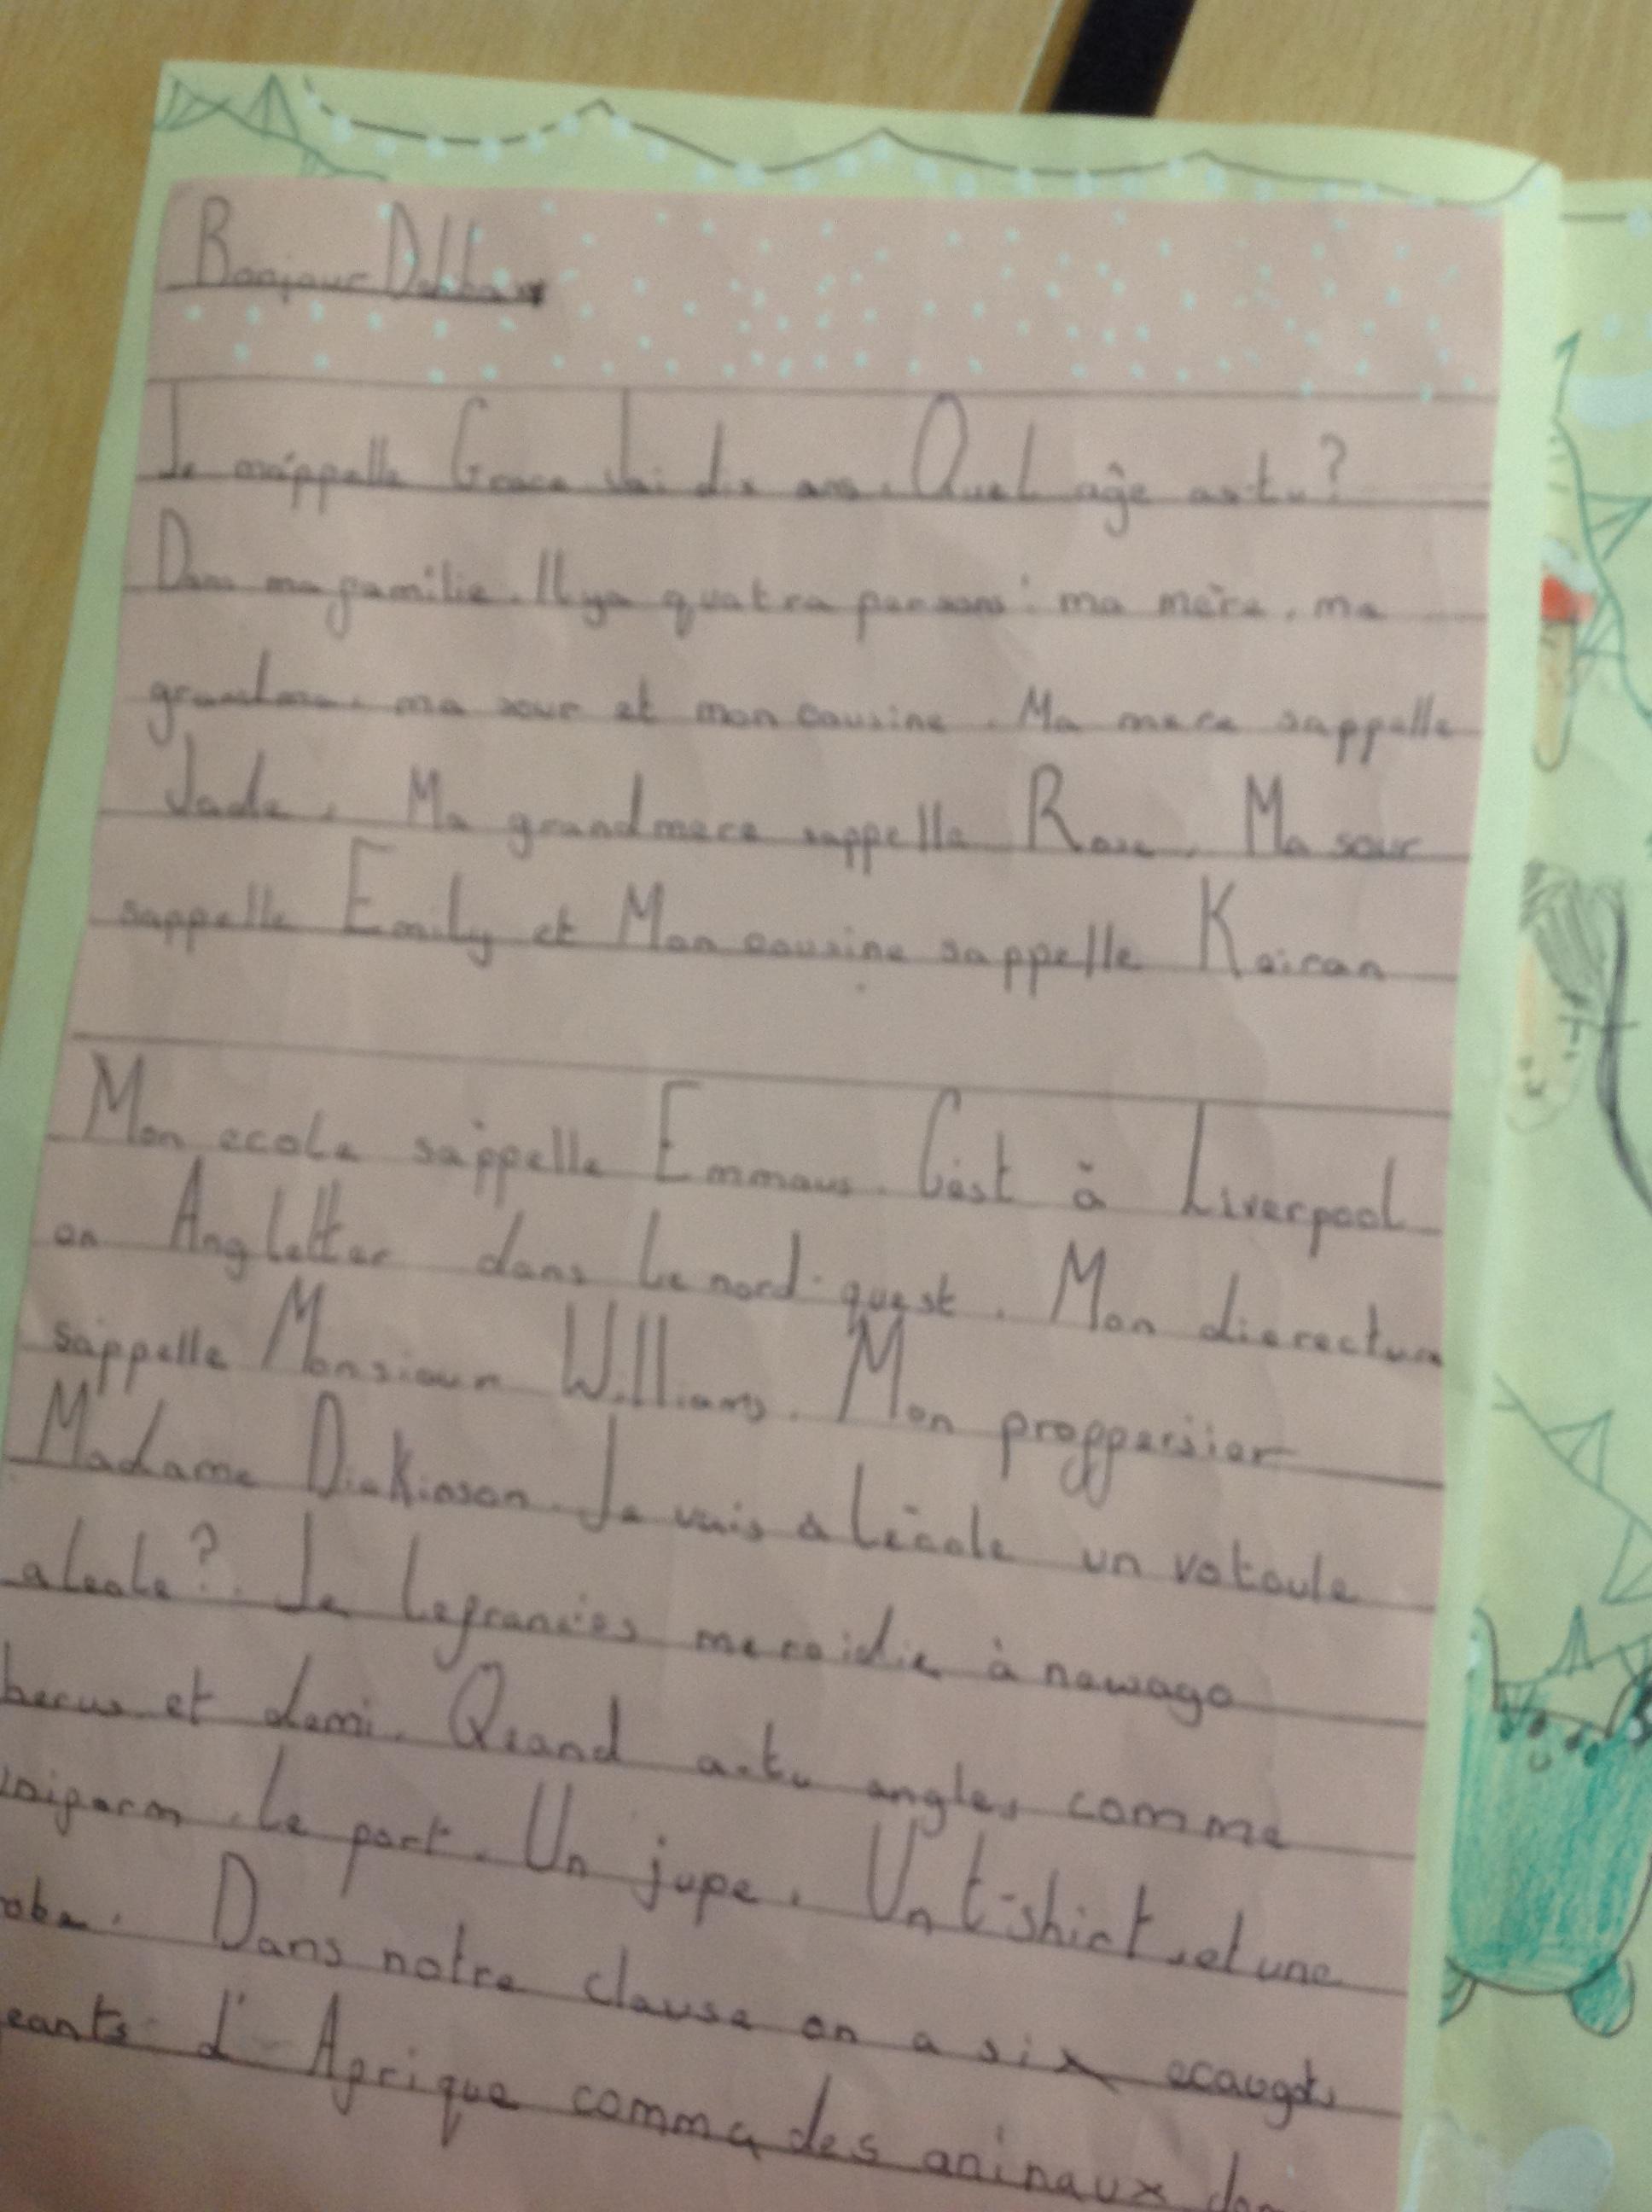 Bonjour
Je m'appelle Grace J'ai dix ans. Quel âge as-tu?
Dans ma familie. Il ya quatre persons: ma mère, ma
ma sour et mon cousine. Ma mere sappelle
Jade. Ma grandmere sappelle Rose. Ma sour
sappelle Emily et Mon cousine sappelle Keiran
Mon ecole s'appelle Emmaus. C'est à Liverpool
en Angletter dans le nord-ouest. Mon dierecture
s'appelle Monsieur Williams. Mon proffersier
Madame Dickinson. Je vais a l'ècole un votoule
aleole? Je meroidie à
herus et demi. Quand a-tu angles comme
le port. Un jupe. Un t-shirt, et une
Dans notre clause on a six
eants d'Afrique comme des animaux